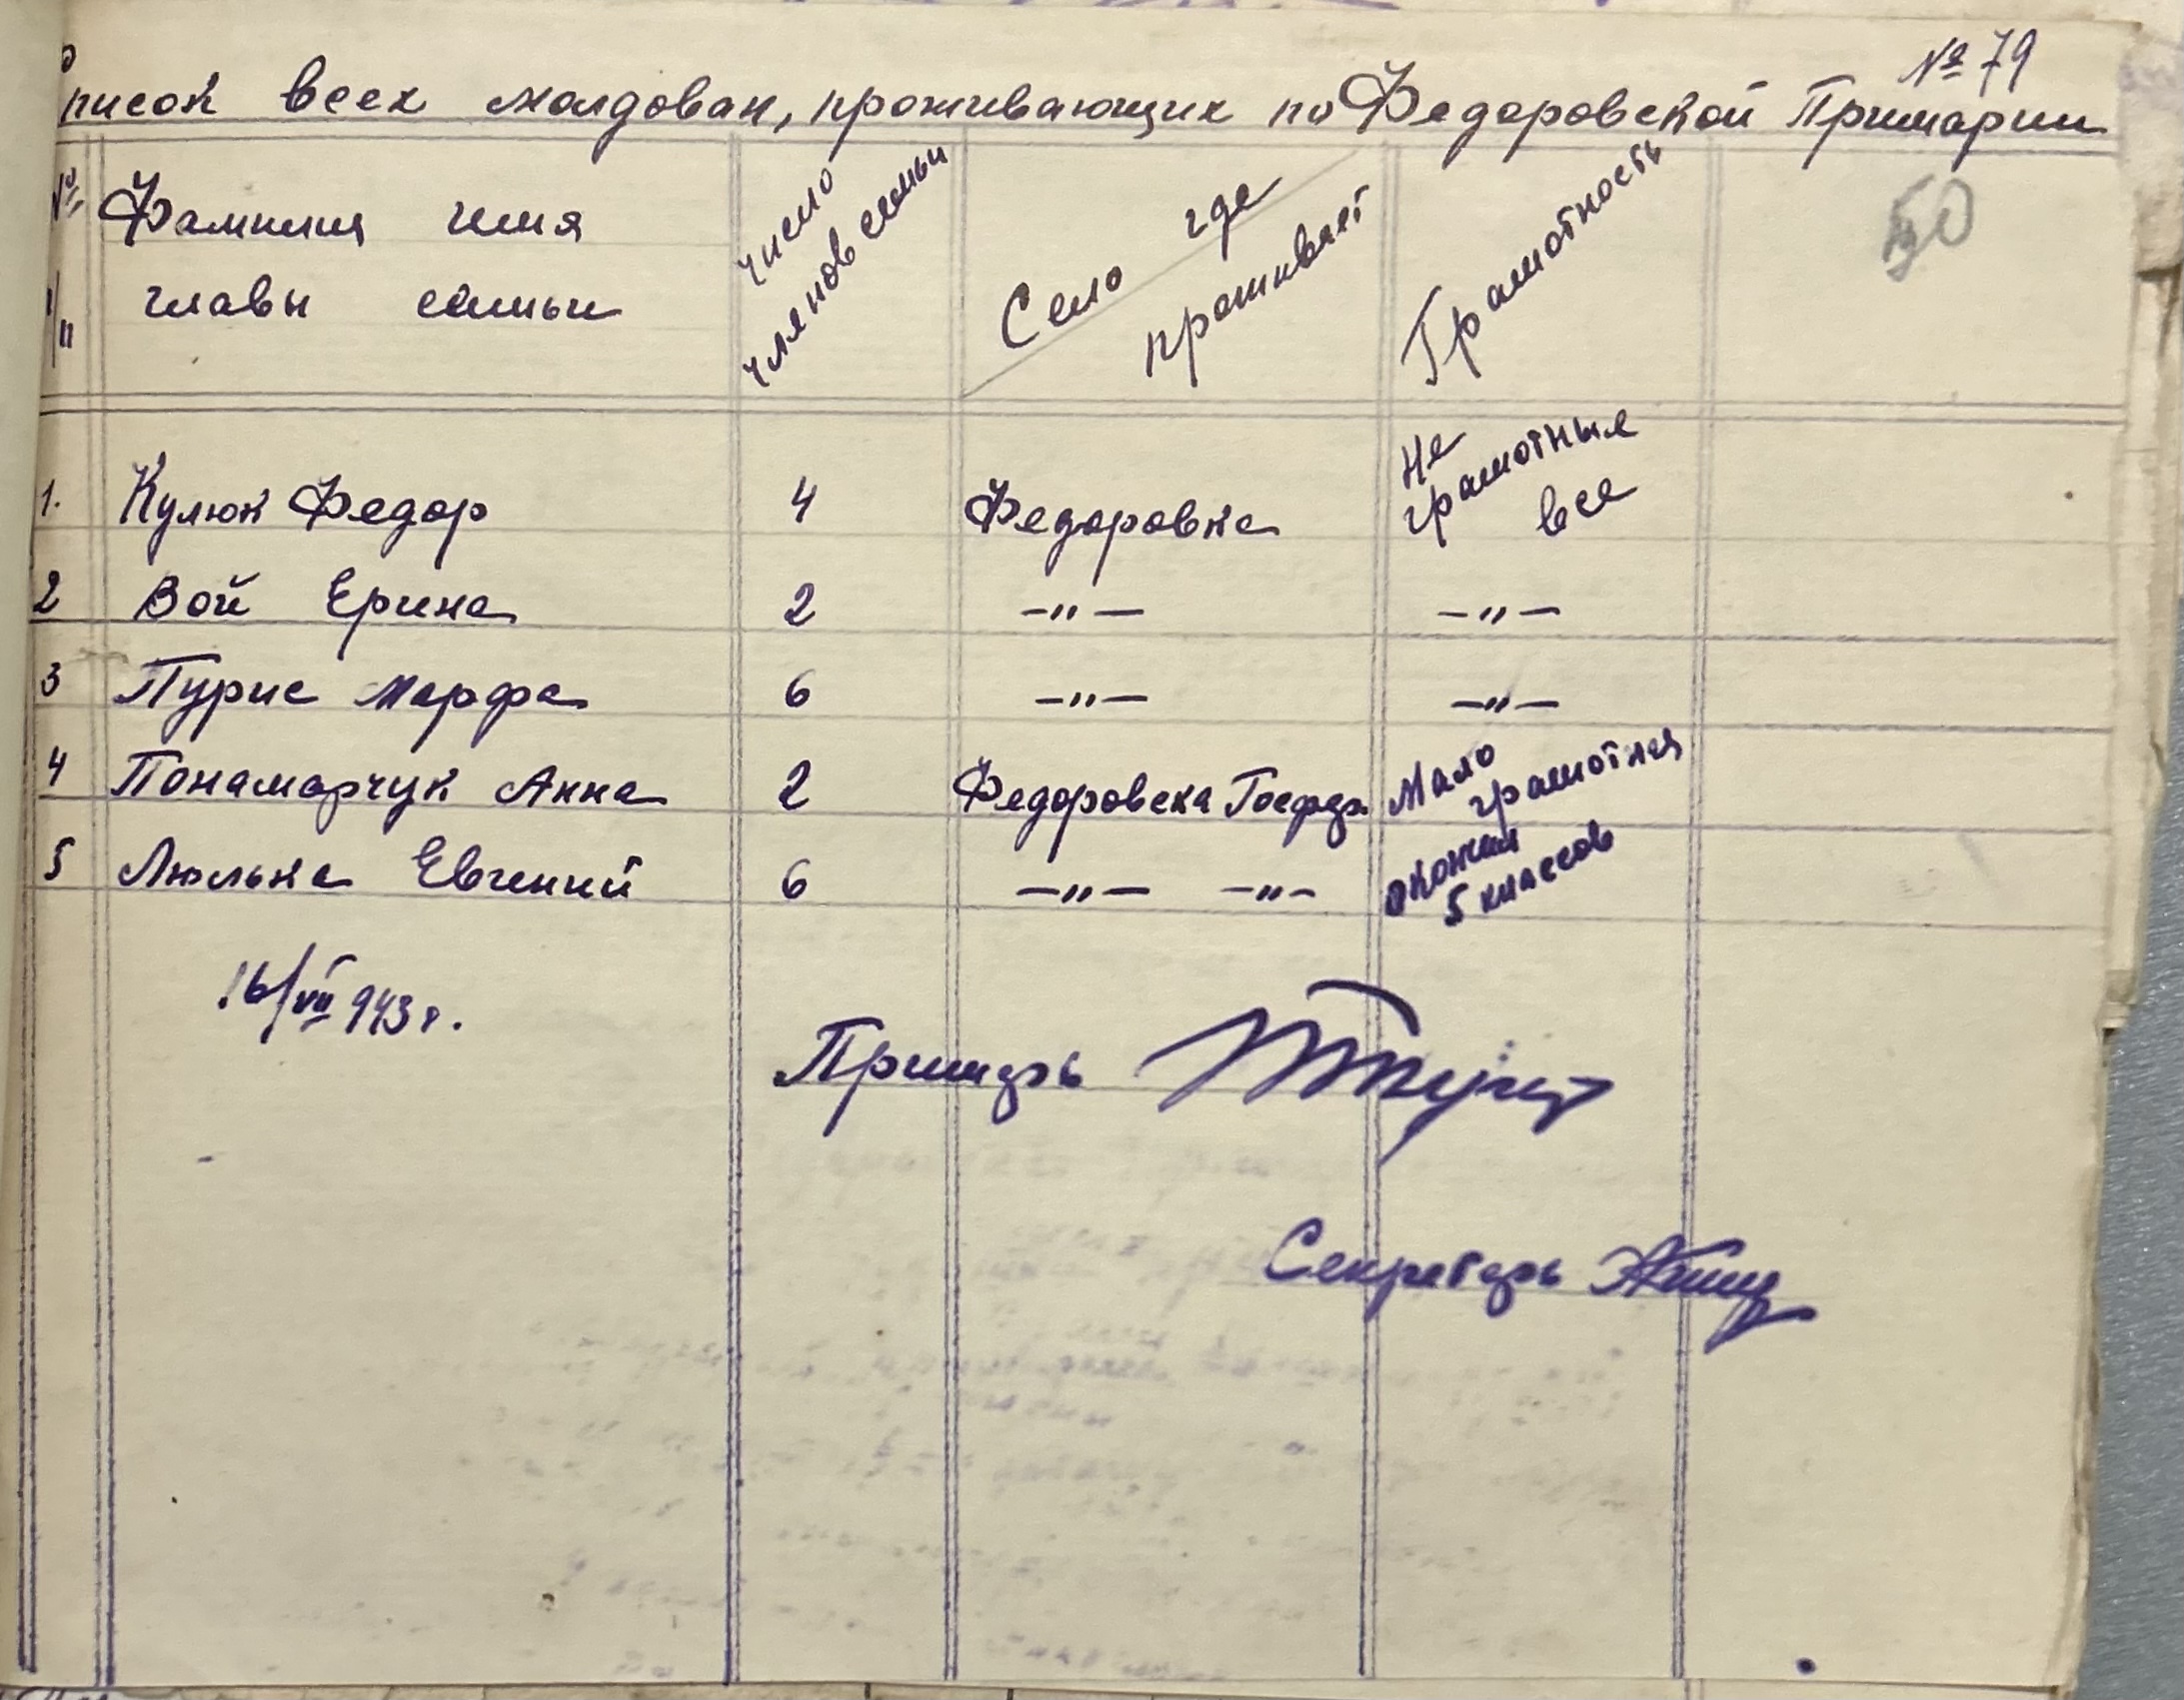 № 79
Список всех молдован, проживающих по Федоровской Примарии
50
№ п/п
Фамилия имя главы семьи
Число членов семьи
Село где проживает
Грамотность
1. Кулюк Федор 4 Федоровка Не грамотные все
2 Вой Ерина 2 —"— —"—
3 Пурис Марфа 6 —"— —"—
4 Понамарчук Анна 2 Федоровска Госфер. Мало грамотная
5 Люлька Евгений 6 —"— —"— окончил 5 классов
16/VII 943 г.
Примарь
Секретарь